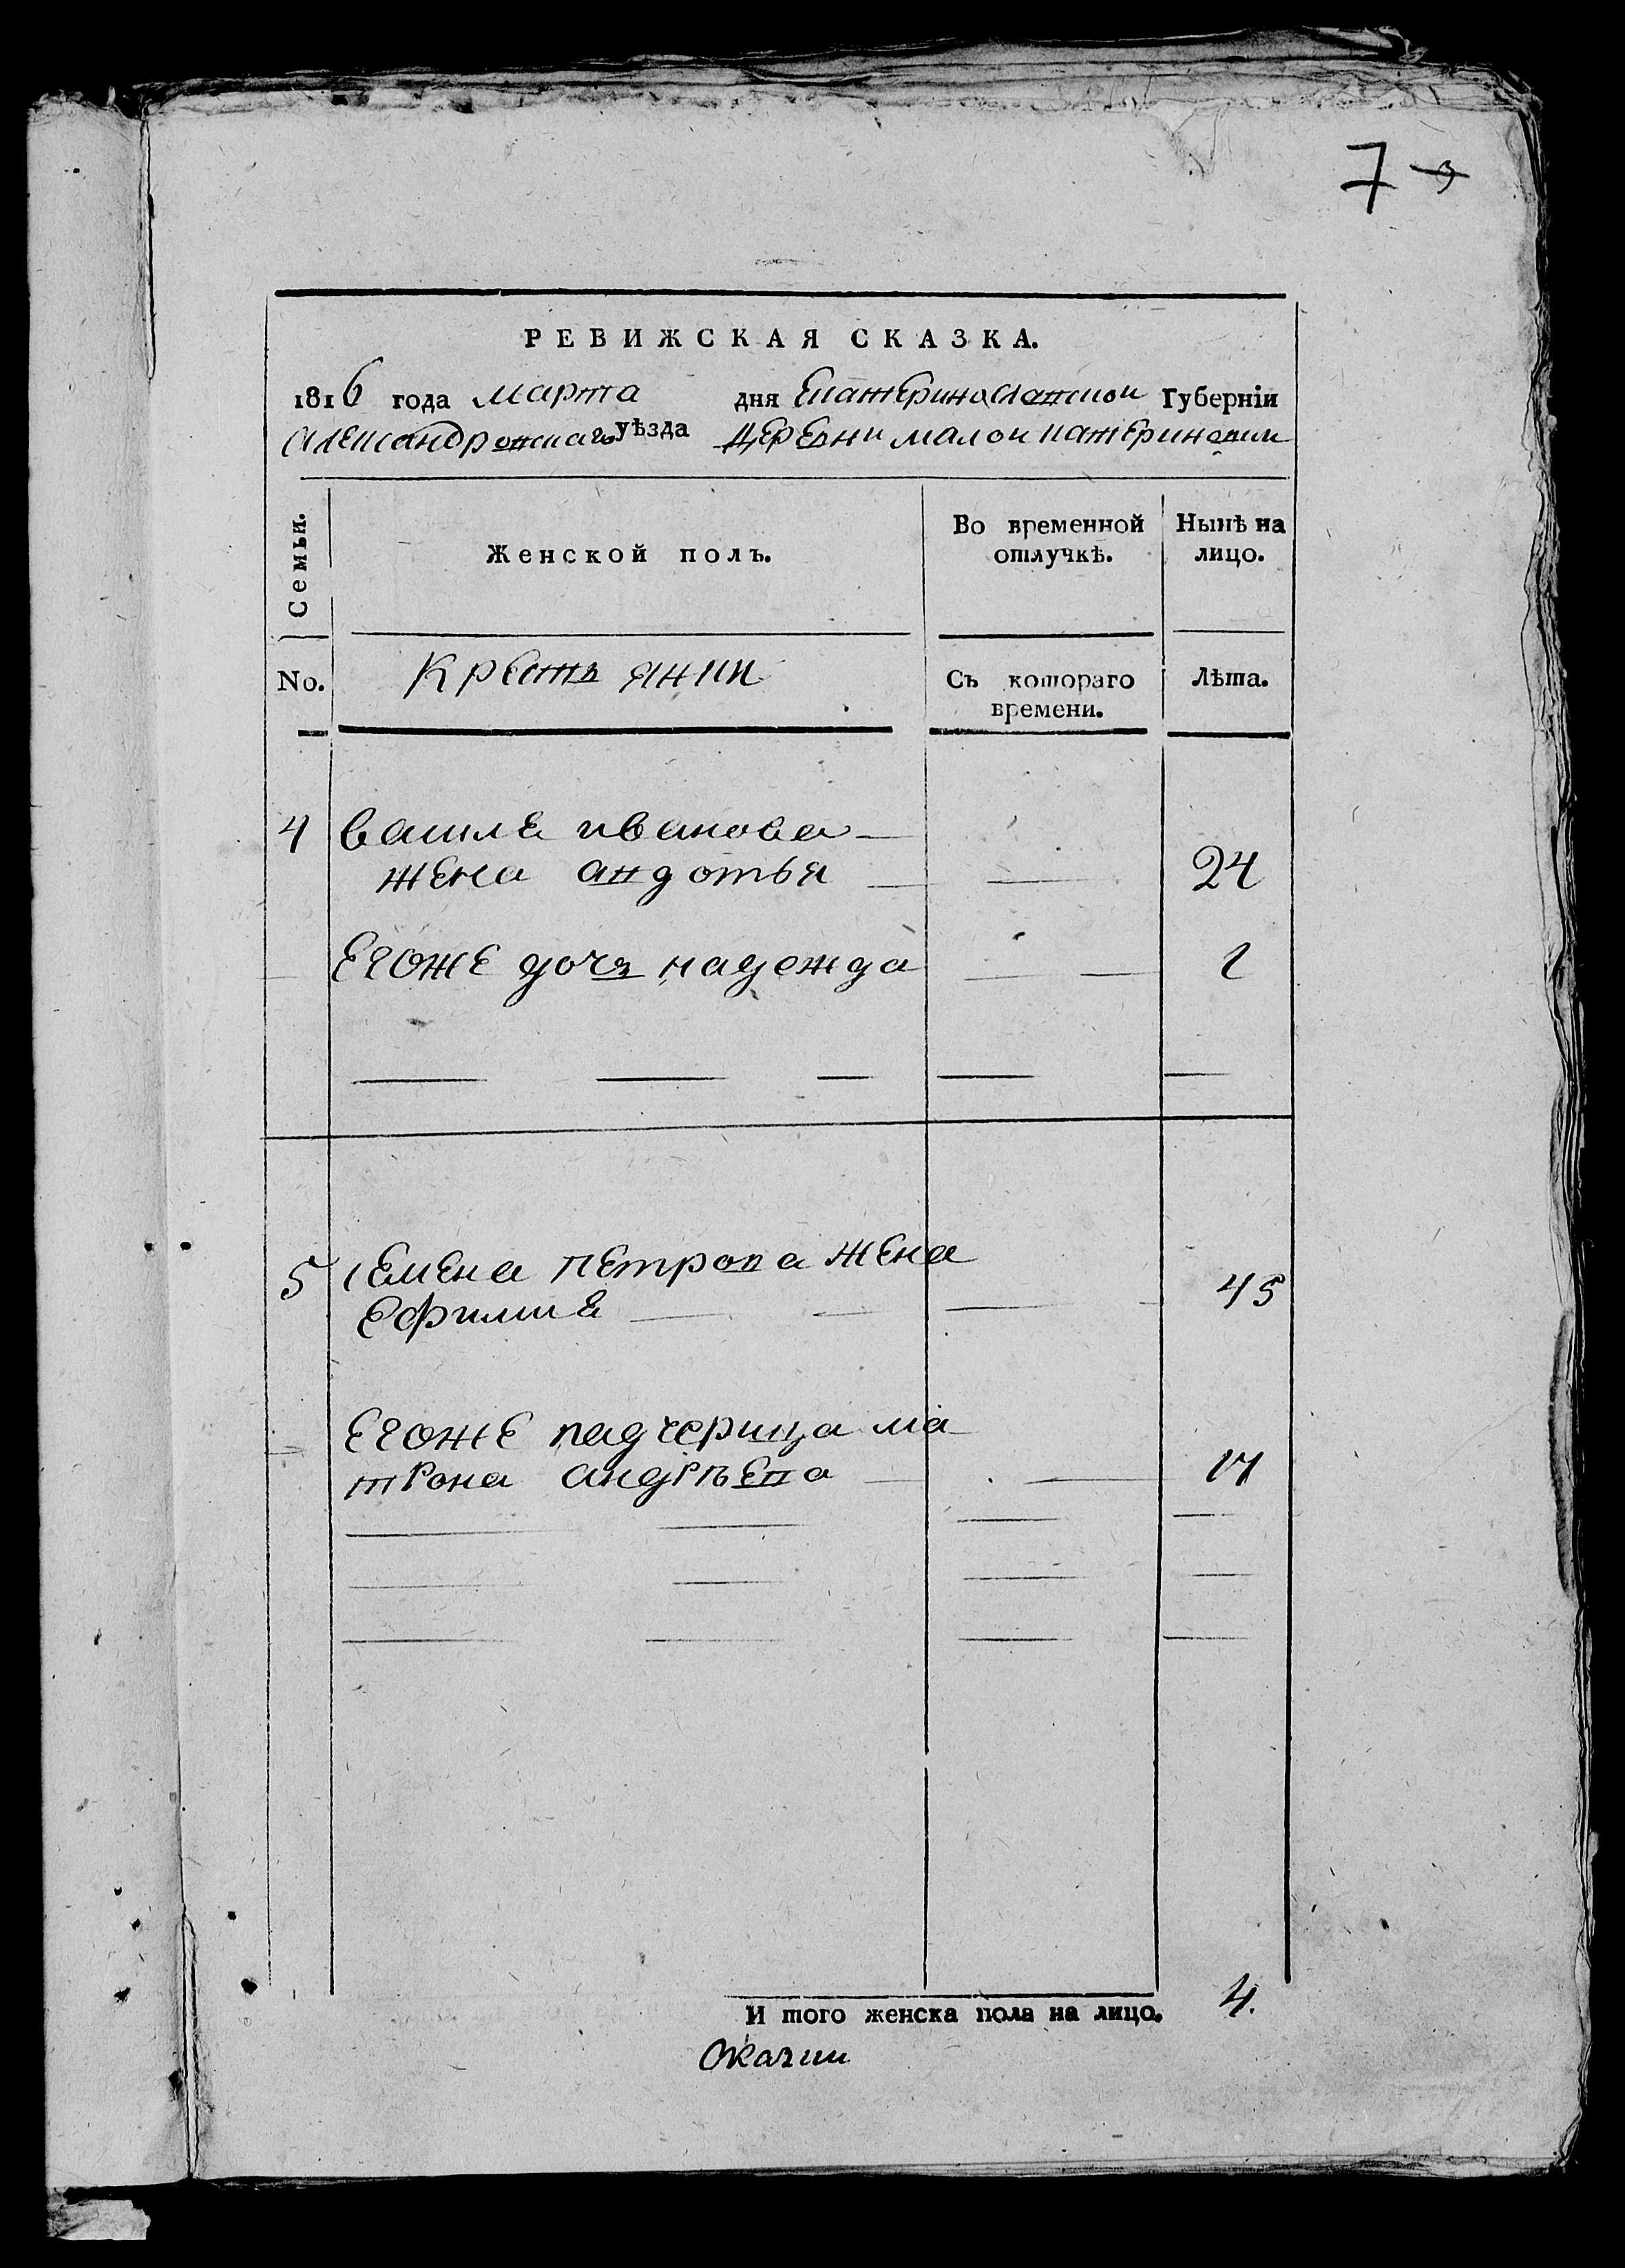 7
РЕВИЖСКАЯ СКАЗКА.
1816 года марта дня Екатеринославской Губерніи
Александровскаго уѣзда деревни малой катериновки
Семьи.
Женской полъ.
Во временной отлучкѣ.
Нынѣ на лицо.
No.
Крестьянки
Съ котораго времени.
Лѣта.
4 василя иванова
жена авдотья 24
егоже дочь надежда 1
5 семена петрова жена
ефимия 45
егоже падчерица ма
трона андрѣева 17
И того женска пола на лицо. 4.